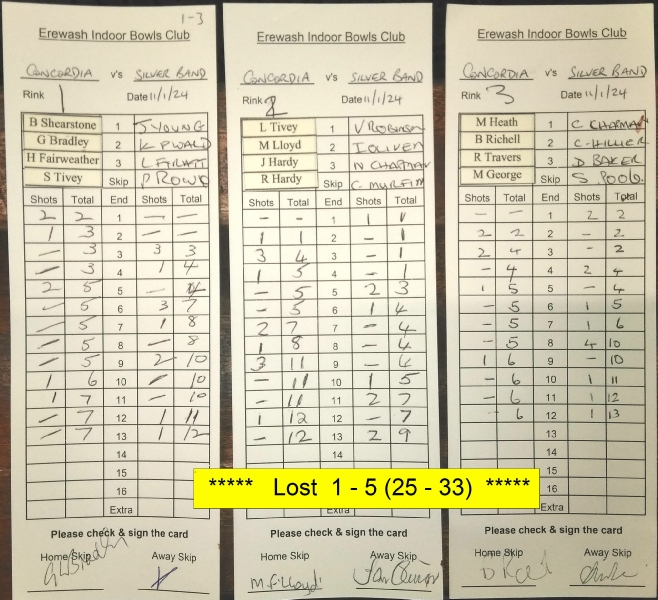 1-3
Erewash Indoor Bowls Club
CONCORDIA v's SILVER BAND
Rink 1 Date 11/1/24
B Shearstone 1 J YOUNG
G Bradley 2 K P WALD
H Fairweather 3
S Tivey Skip P ROWE
Shots Total End Shots Total
2 2 1 — —
1 3 2 — —
— 3 3 3 3
— 3 4 1 4
2 5 5 — 4
— 5 6 3 7
— 5 7 1 8
— 5 8 — 8
— 5 9 2 10
1 6 10 — 10
1 7 11 — 10
— 7 12 1 11
— 7 13 1 12
14
15
16
Extra
Please check & sign the card
Home Skip Away Skip
Erewash Indoor Bowls Club
CONCORDIA v's SILVER BAND
Rink 2 Date 11/1/24
L Tivey 1 V ROBINSON
M Lloyd 2 I OLIVER
J Hardy 3 N CHAPMAN
R Hardy Skip C MURFIN
Shots Total End Shots Total
- - 1 1 1
1 1 2 - 1
3 4 3 - 1
1 5 4 - 1
- 5 5 2 3
- 5 6 1 4
2 7 7 - 4
1 8 8 - 4
3 11 9 - 4
- 11 10 1 5
- 11 11 2 7
1 12 12 - 7
- 12 13 2 9
14
Extra
Please check & sign the card
Home Skip Away Skip
M.F. Lloyd
Erewash Indoor Bowls Club
CONCORDIA v's SILVER BAND
Rink 3 Date 11/1/24
M Heath 1 C CHAPMAN
B Richell 2 C HILLIER
R Travers 3 D BAKER
M George Skip S POOL
Shots Total End Shots Total
- - 1 2 2
2 2 2 - 2
2 4 3 - 2
- 4 4 2 4
1 5 5 - 4
- 5 6 1 5
- 5 7 1 6
- 5 8 4 10
1 6 9 - 10
- 6 10 1 11
- 6 11 1 12
- 6 12 1 13
13
14
15
16
Extra
Please check & sign the card
Home Skip Away Skip
***** Lost 1 - 5 (25 - 33) *****